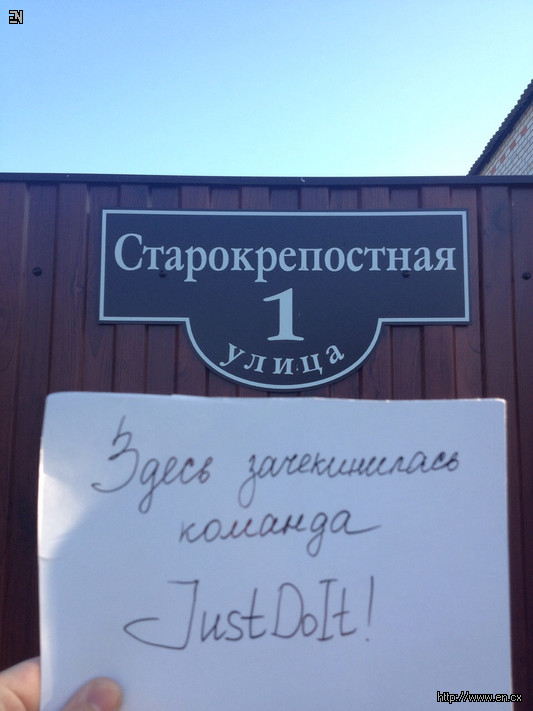 EN
Старокрепостная
1
улица
Здесь зачекинилась
команда
JustDoIt!
http://www.en.cx